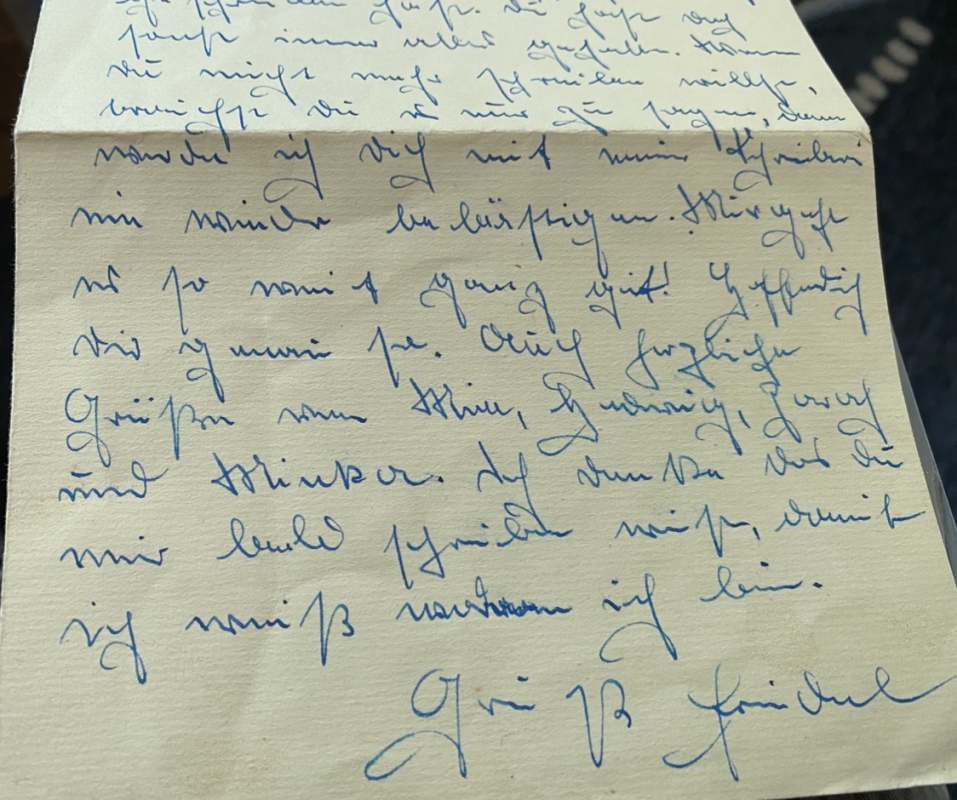 Du hast doch
sonst immer alles gehalten. Wenn
du nicht mehr schreiben willst,
brauchst du es nur zu sagen, dann
werde ich dich mit mein Schreiben
nie wieder belästigen. Mir geht
es so weit ganz gut. Hoffendlich
dir genau so. Auch herzliche
Grüße von Mimi, Hedwig,
und Minka. Ich denke das du
mir bald schreiben wirst, damit
ich weiß woran ich bin.
Gruß Friedel